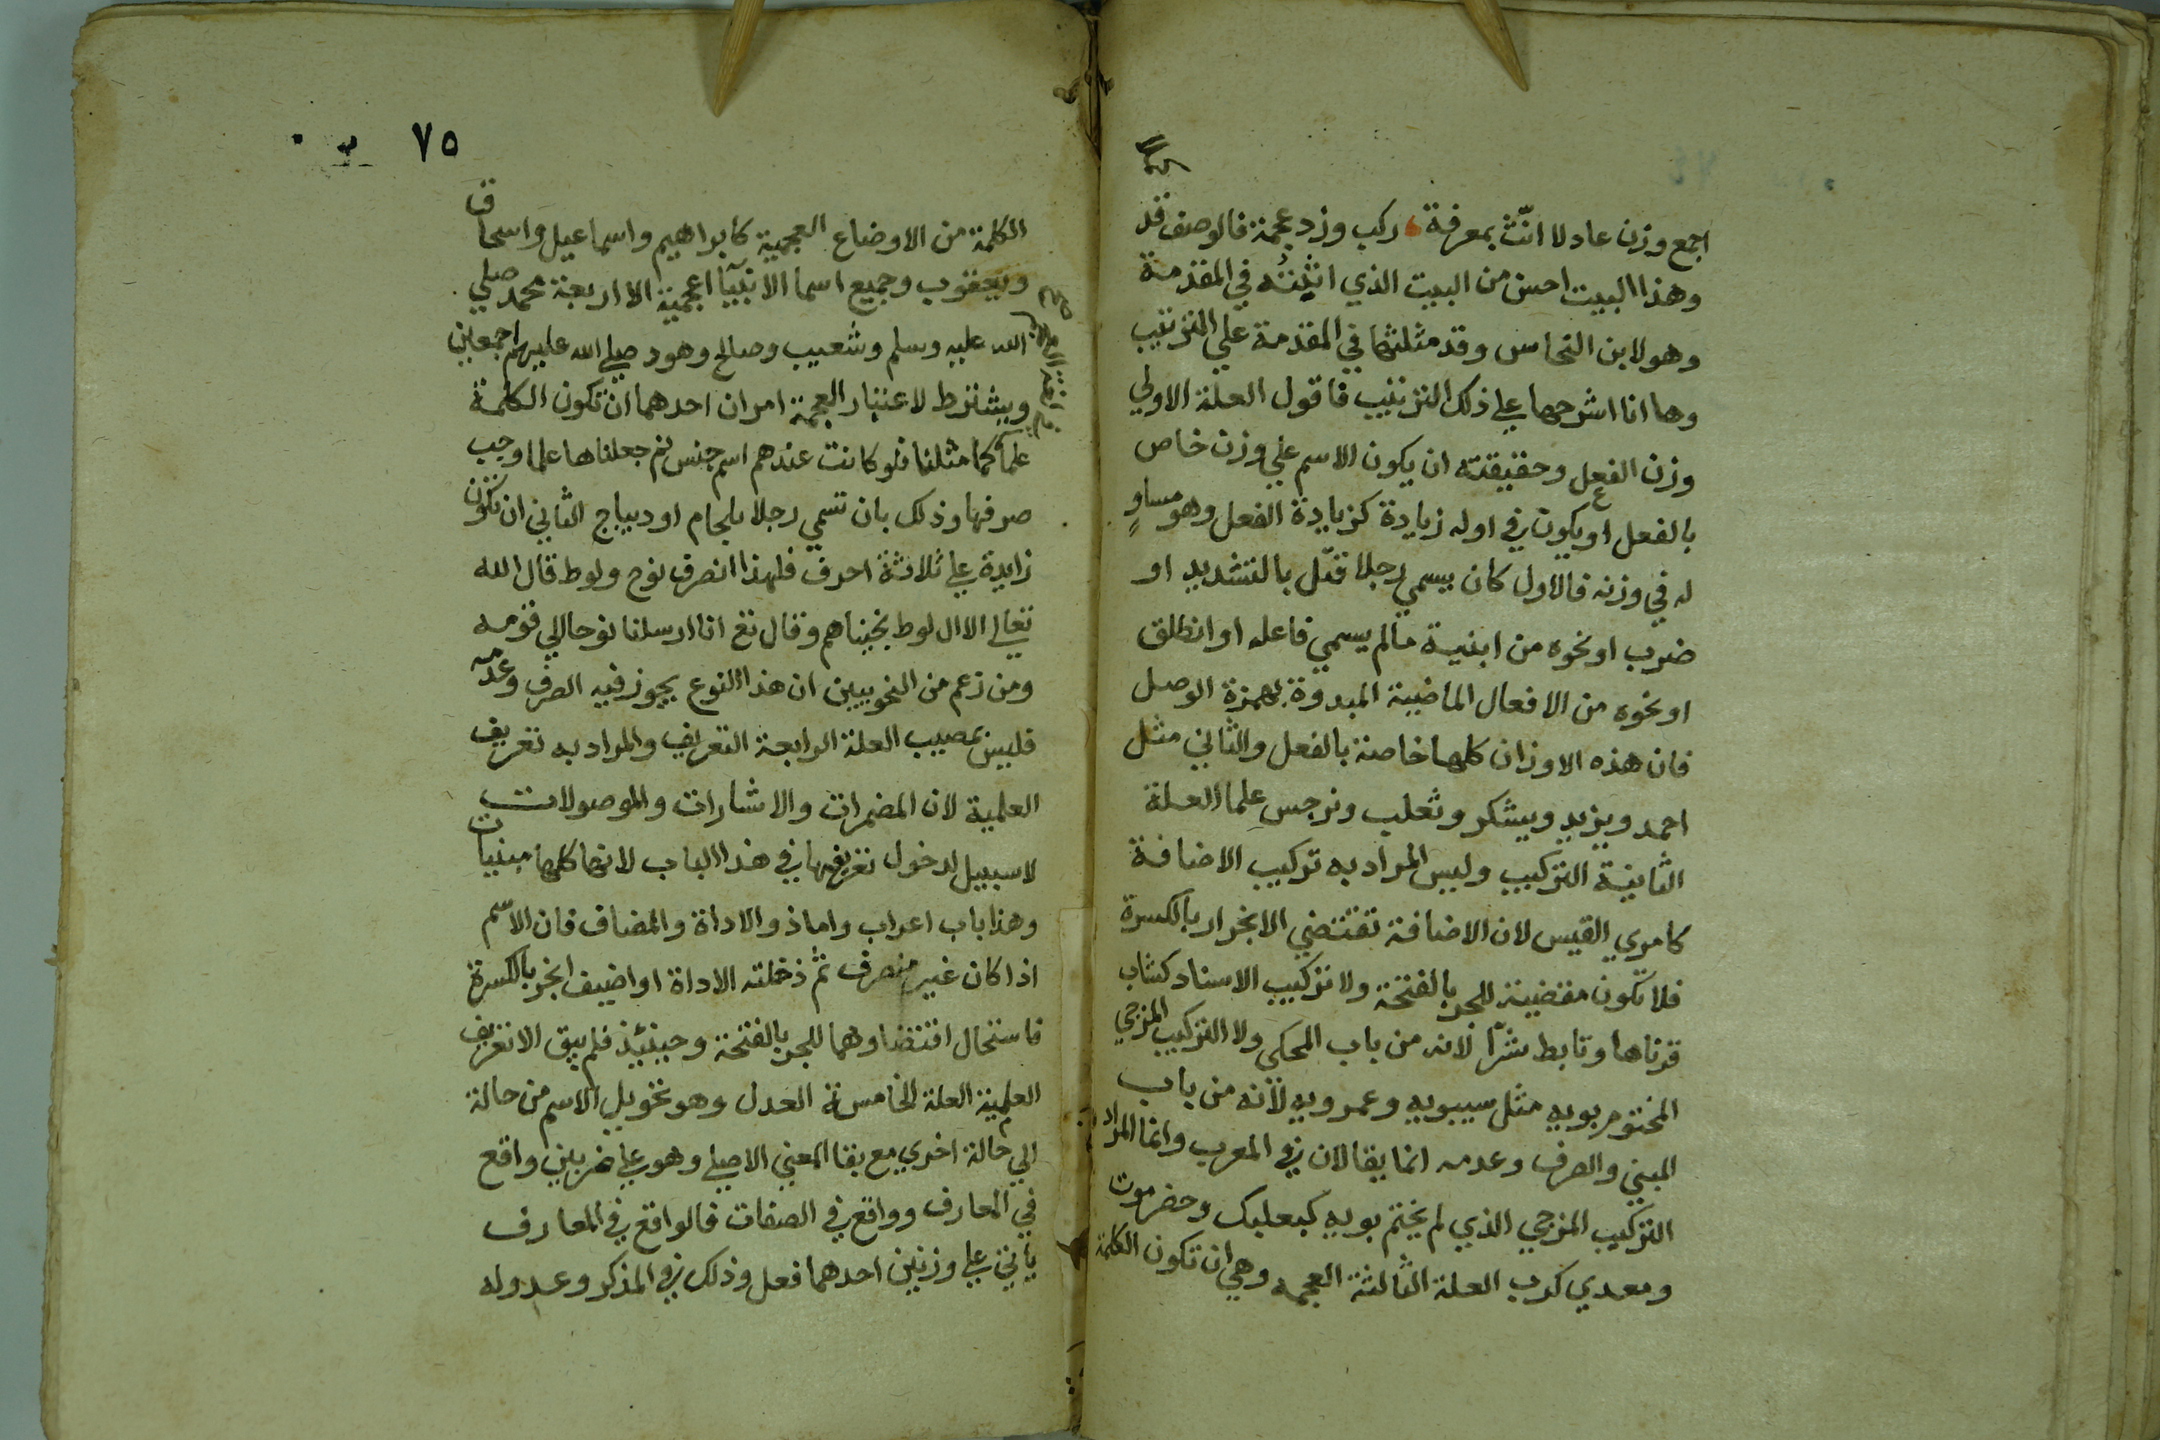 كملا
اجمع وزن عادلا انّث بمعرفة ، ركب وزد عجمة فالوصف قد
وهذا البيت احسن من البيت الذي اثبتُّه في المقدمة
وهو لابن النحاس وقد مثلتها في المقدمة علي الترتيب
وها انا اشرحها علي ذلك الترتيب فاقول العلة الاولي
وزن الفعل وحقيقته ان يكون الاسم علي وزن خاص
بالفعل او يكون في اوله زيادة كزيادة الفعل وهو مساوٍ
له في وزنه فالاول كان يسمي رجلا قتّل بالتشديد او
ضرب او نحوه من ابنية مالم يسمي فاعله او انطلق
او نحوه من الافعال الماضية المبدوة بهمزة الوصل
فان هذه الاوزان كلها خاصة بالفعل والثاني مثل
احمد ويزيد ويشكر وثعلب ونرجس علما العلة
الثانية التركيب وليس المراد به تركيب الاضافة
كامري القيس لان الاضافة تقتضي الانجرار بالكسرة
فلا تكون مقتضية للجر بالفتحة ولا تركيب الاسناد كشاب
قرناها وتابط شرّا لانه من باب المحكي ولا التركيب المزجي
المختوم بويه مثل سيبويه وعمرويه لأنه من باب
المبني والصرف وعدمه انما يقالان في المعرب وانما المراد
التركيب المزجي الذي لم يختم بويه كبعلبك وحضرموت
ومعدي كرب العلة الثالثة العجمه وهي ان تكون الكلمة
٧٥
الكلمة من الاوضاع العجمية كابراهيم واسماعيل واسحاق
ويعقوب وجميع اسما الانبيآ اعجمية الا اربعة محمد صلي
الله عليه وسلم وشعيب وصالح وهود صلي الله عليهم اجمعين
ويشترط لاعتبار العجمة امران احدهما ان تكون الكلمة
علما كما مثلنا فلو كانت عندهم اسم جنس ثم جعلناها علما وجب
صرفها وذلك بان تسمي رجلا بلجام او ديباج الثاني ان تكون
زايدة علي ثلاثة احرف فلهذا انصرف نوح ولوط قال الله
تعالي الا ال لوط نجيناهم وقال تع انا ارسلنا نوحا الي قومه
ومن زعم من النحويين ان هذا النوع يجوز فيه الصرف وعدمه
فليس بمصيب العلة الرابعة التعريف والمراد به تعريف
العلمية لان المضمرات والاشارات والموصولات
لا سبيل لدخول تعريفها في هذا الباب لانها كلها مبنيات
وهذا باب اعراب واما ذو الاداة والمضاف فان الاسم
اذا كان غير منصرف ثم دخلته الاداة او اضيف انجر بالكسرة
فاستحال اقتضاوهما للجر بالفتحة وحينئذ فلم يبق الا تعريف
العلمية العلة الخامسة العدل وهو تحويل الاسم من حالة
الي حالة اخري مع بقا المعني الاصلي وهو علي ضربين واقع
في المعارف وواقع في الصفات فالواقع في المعارف
ياتي علي وزنين احدهما فعل وذلك في المذكر وعدوله